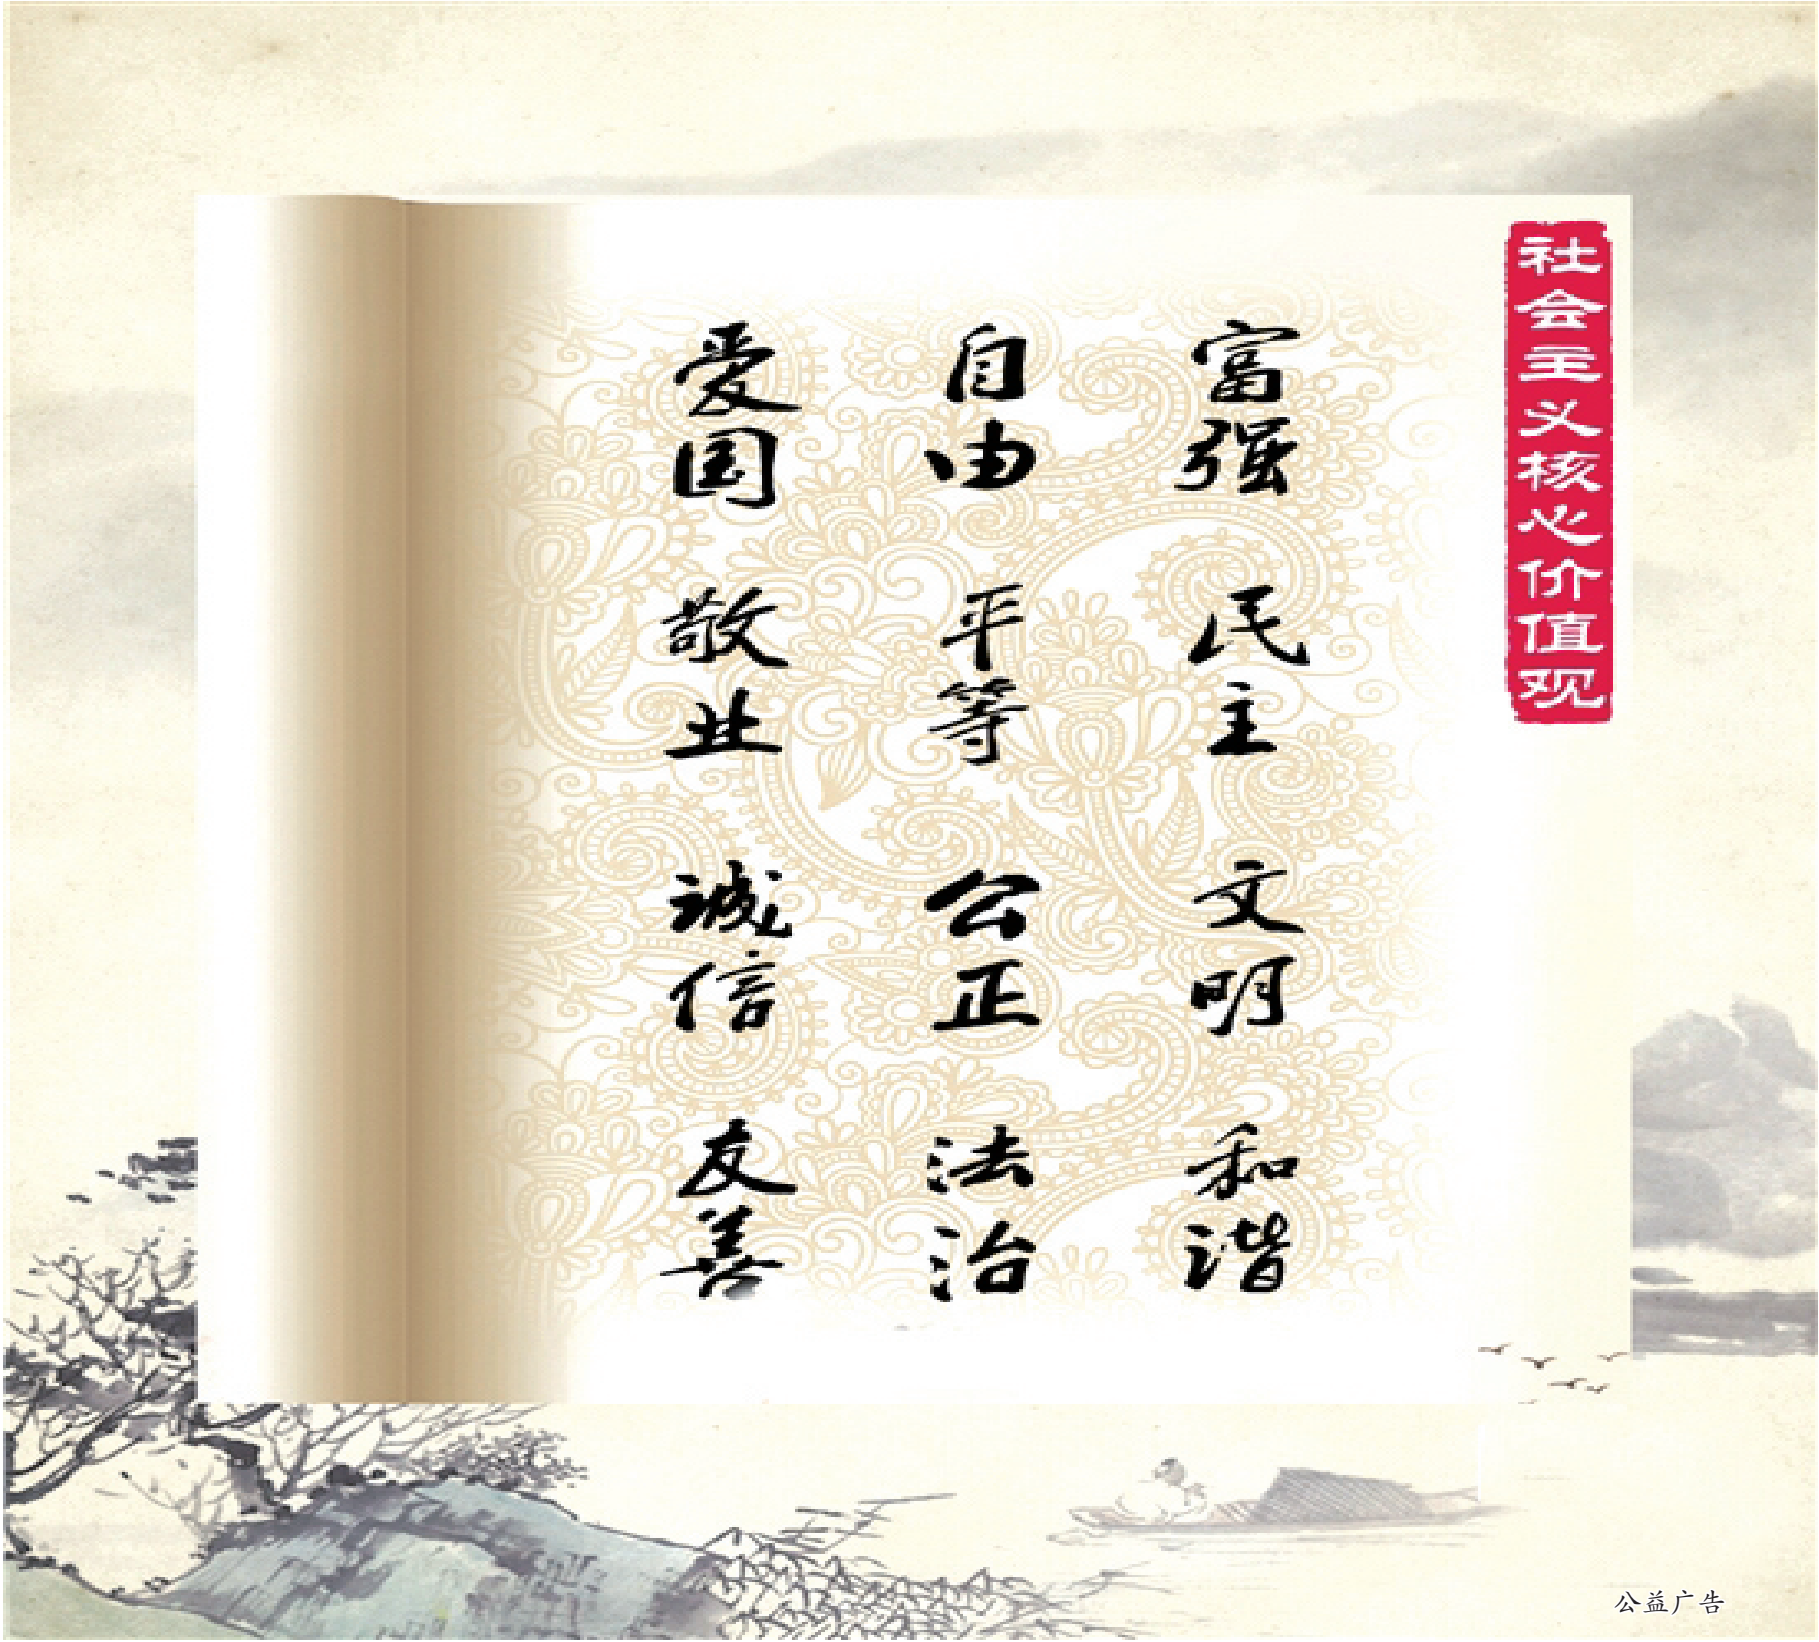 社会主义核心价值观
富强 民主 文明 和谐
自由 平等 公正 法治
爱国 敬业 诚信 友善
公益广告